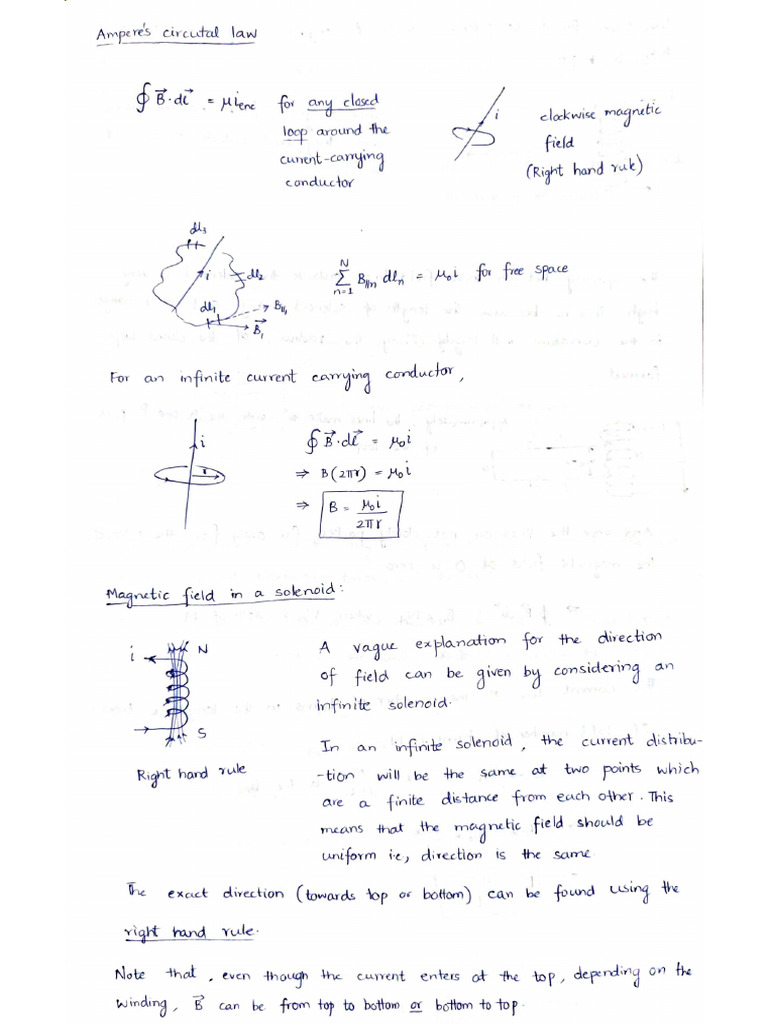 Ampere's circutal law
∮ B⃗·dl⃗ = μ i_enc for any closed
loop around the
current-carrying
conductor
i
clockwise magnetic
field
(Right hand rule)
dl₃
i
dl₂
dl₁
B∥₁
B⃗₁
∑_{n=1}^{N} B∥n dlₙ = μ₀i for free space
For an infinite current carrying conductor,
i
r
∮ B⃗·dl⃗ = μ₀i
⇒ B(2πr) = μ₀i
⇒ B = μ₀i / 2πr
Magnetic field in a solenoid:
i
N
S
Right hand rule
A vague explanation for the direction
of field can be given by considering an
infinite solenoid.
In an infinite solenoid, the current distribu-
-tion will be the same at two points which
are a finite distance from each other. This
means that the magnetic field should be
uniform ie, direction is the same
The exact direction (towards top or bottom) can be found using the
right hand rule.
Note that, even though the current enters at the top, depending on the
winding, B⃗ can be from top to bottom or bottom to top.